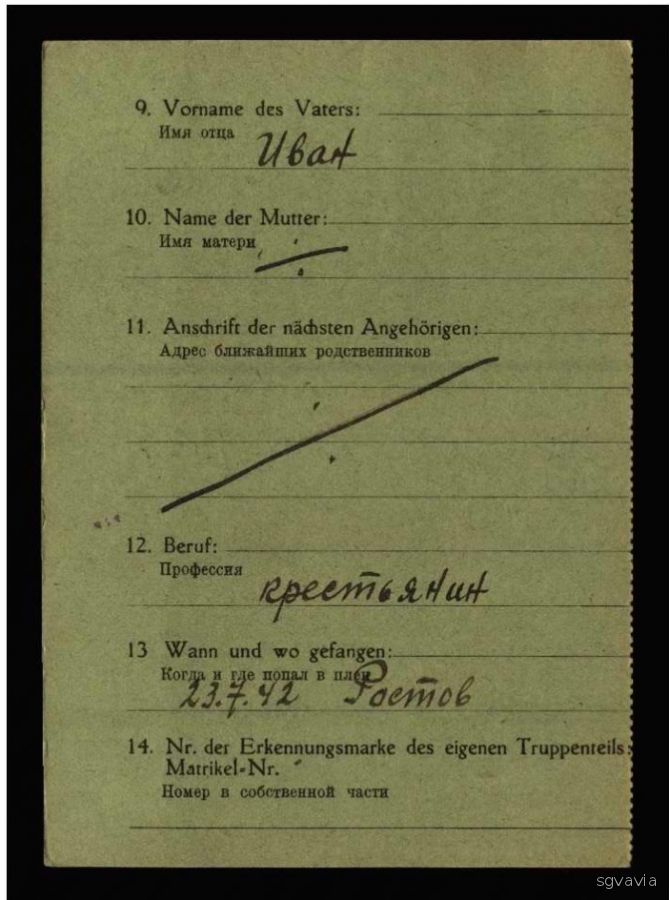 9. Vorname des Vaters:
Имя отца
Иван
10. Name der Mutter:
Имя матери
11. Anschrift der nächsten Angehörigen:
Адрес ближайших родственников
12. Beruf:
Профессия
крестьянин
13 Wann und wo gefangen:
Когда и где попал в плен
23.7.42 Ростов
14. Nr. der Erkennungsmarke des eigenen Truppenteils:
Matrikel-Nr.
Номер в собственной части
sgvavia